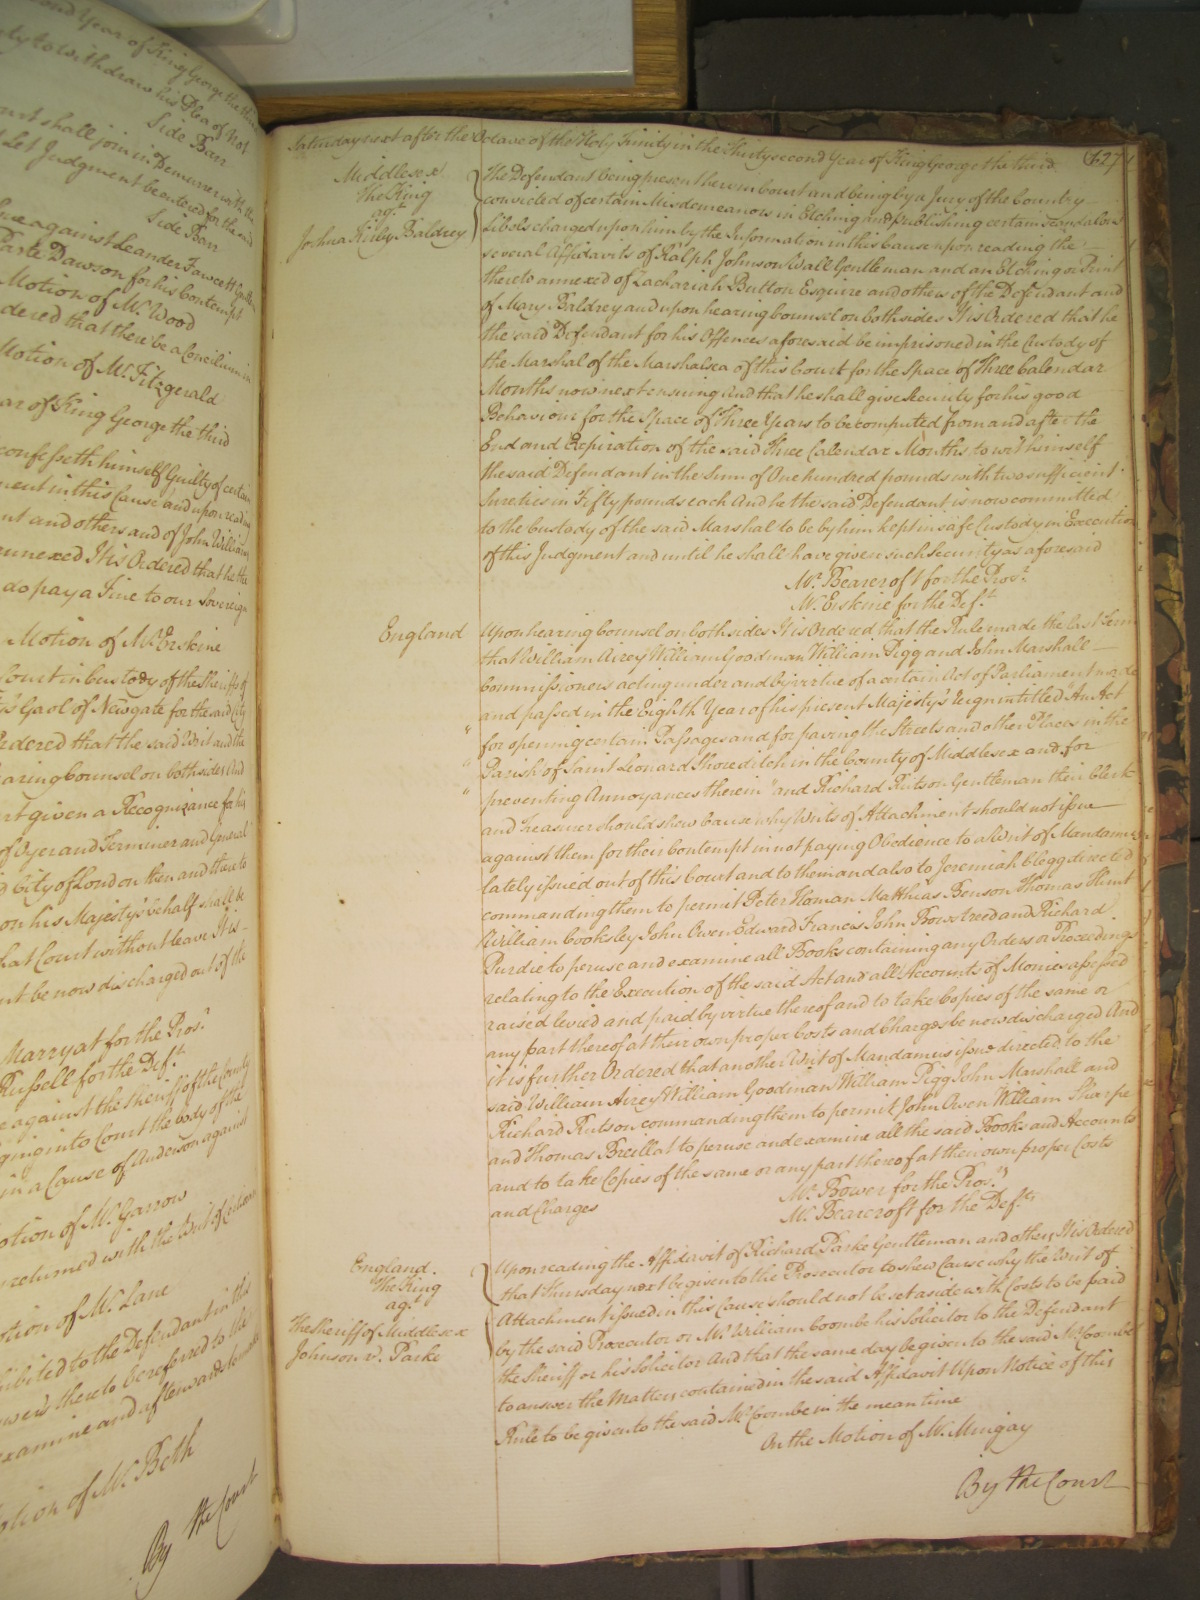 Year of King George the third
to withdraw his Plea of Not
Side Barr
Court shall join in Demurrer with the
Let Judgment be entered for the said
Side Barr
against Leander Fawcett
Dawson for his Contempt
Motion of Mr. Wood
dered that there be a Concilium
Motion of Mr. Fitzgerald
ar of King George the third
confesseth himself Guilty of certain
ment in this Cause and upon reading
nt and others and of John William
annexed It is Ordered that he the
do pay a Fine to our Sovereign
Motion of Mr. Erskine
Court in Custody of the Sheriffs of
Gaol of Newgate for the said City
Ordered that the said Writ and the
hearing Counsel on both sides And
given a Recognizance for his
of Oyer and Terminer and General
City of London then and there to
on his Majesty's behalf shall be
that Court without leave It is
nt be now discharged out of the
Marryat for the Prosr.
Russell for the Deft.
against the Sheriff of the County
ging into Court the body of the
in a Cause of Anderson against
otion of Mr. Garrow
returned with the Writ of Certiorari
otion of Mr. Lane
hibited to the Defendant in this
wers thereto be referred to the
examine and afterwards to make
otion of Mr. Beth
By the Court
Saturday next after the Octave of the Holy Trinity in the Thirty second Year of King George the third
(627)
Middlesex
The King
agt.
Joshua Kirby Baldrey
The Defendant being present here in Court and being by a Jury of the Country
convicted of certain Misdemeanors in Etching and publishing certain Scandalous
Libels charged upon him by the Information in this Cause upon reading the
several Affidavits of Ralph Johnson Wall Gentleman and an Etching or Print
thereto annexed of Zachariah Button Esquire and others of the Defendant and
of Mary Baldrey and upon hearing Counsel on both sides It is Ordered that he
the said Defendant for his Offences aforesaid be imprisoned in the Custody of
the Marshal of the Marshalsea of this Court for the Space of Three Calendar
Months now next ensuing And that he shall give Security for his good
Behaviour for the Space of Three Years to be computed from and after the
End and Expiration of the said Three Calendar Months to wit himself
the said Defendant in the Sum of One hundred pounds with two sufficient
Sureties in Fifty pounds each And he the said Defendant is now committed
to the Custody of the said Marshal to be by him kept in safe Custody in Execution
of this Judgment and until he shall have given such Security as aforesaid
Mr. Bearcroft for the Prosr.
Mr. Erskine for the Deft.
England
Upon hearing Counsel on both sides It is Ordered that the Rule made the last Term
that William Airey William Goodman William Pigg and John Marshall
Commissioners acting under and by virtue of a certain Act of Parliament made
and passed in the Eighth Year of his present Majesty's Reign intitled An Act
" for opening certain Passages and for paving the Streets and other Places in the
" Parish of Saint Leonard Shoreditch in the County of Middlesex and for
" preventing Annoyances therein" and Richard Rutson Gentleman their Clerk
and Treasurer should shew Cause why Writs of Attachment should not issue
against them for their Contempt in not paying Obedience to a Writ of Mandamus
lately issued out of this Court and to them and also to Jeremiah Clegg directed
commanding them to permit Peter Homan Matthias Benson Thomas Hunt
William Cooksley John Owen Edward Francis John Rowstreed and Richard
Purdie to peruse and examine all Books containing any Orders or Proceedings
relating to the Execution of the said Act and all Accounts of Monies assessed
raised levied and paid by virtue thereof and to take Copies of the same or
any part thereof at their own proper Costs and Charges be now discharged And
it is further Ordered that another Writ of Mandamus issue directed to the
said William Airey William Goodman William Pigg John Marshall and
Richard Rutson commanding them to permit John Owen William Sharpe
and Thomas Breillat to peruse and examine all the said Books and Accounts
and to take Copies of the same or any part thereof at their own proper Costs
and Charges
Mr. Bower for the Prosr.
Mr. Bearcroft for the Deft.
England.
The King
agt.
The Sheriff of Middlesex
Johnson v. Parke
Upon reading the Affidavit of Richard Parke Gentleman and others It is Ordered
that Thursday next be given to the Prosecutor to shew Cause why the Writ of
Attachment issued in this Cause should not be set aside with Costs to be paid
by the said Prosecutor or Mr. William Coombe his Solicitor to the Defendant
the Sheriff or his Solicitor And that the same day be given to the said Mr. Coombe
to answer the Matters contained in the said Affidavit Upon Notice of this
Rule to be given to the said Mr. Coombe in the mean time
On the Motion of Mr. Mingay
By the Court